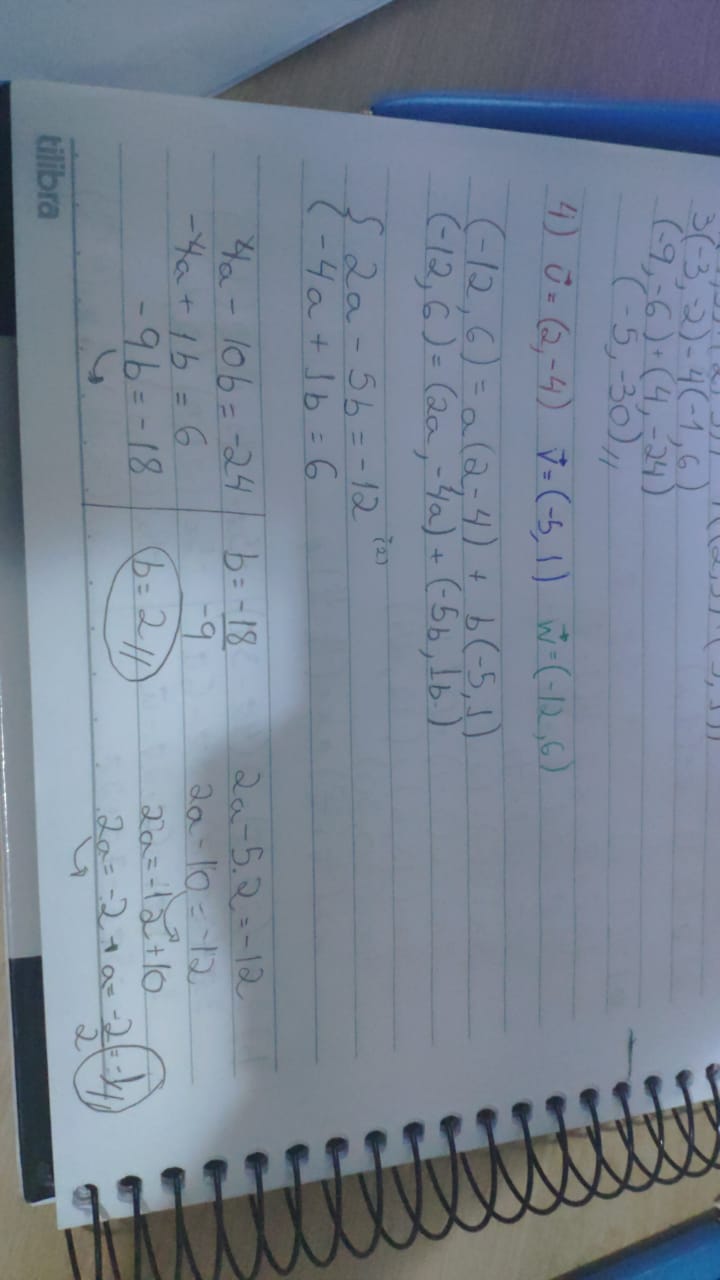 3(-3,-2)-4(-1,6)
(-9,-6)+(4,-24)
(-5,-30)//
4) u⃗=(2,-4) v⃗=(-5,1) w⃗=(-12,6)
(-12,6)=a(2-4) + b(-5,1)
(-12,6)=(2a,-4a)+(-5b,1b)
{ 2a-5b=-12 (2)
-4a+1b=6
4a-10b=-24
-4a+1b=6
-9b=-18
b=-18/-9
b=2//
2a-5.2=-12
2a-10=-12
2a=-12+10
2a=-2 → a=-2/2=-1//
tilibra